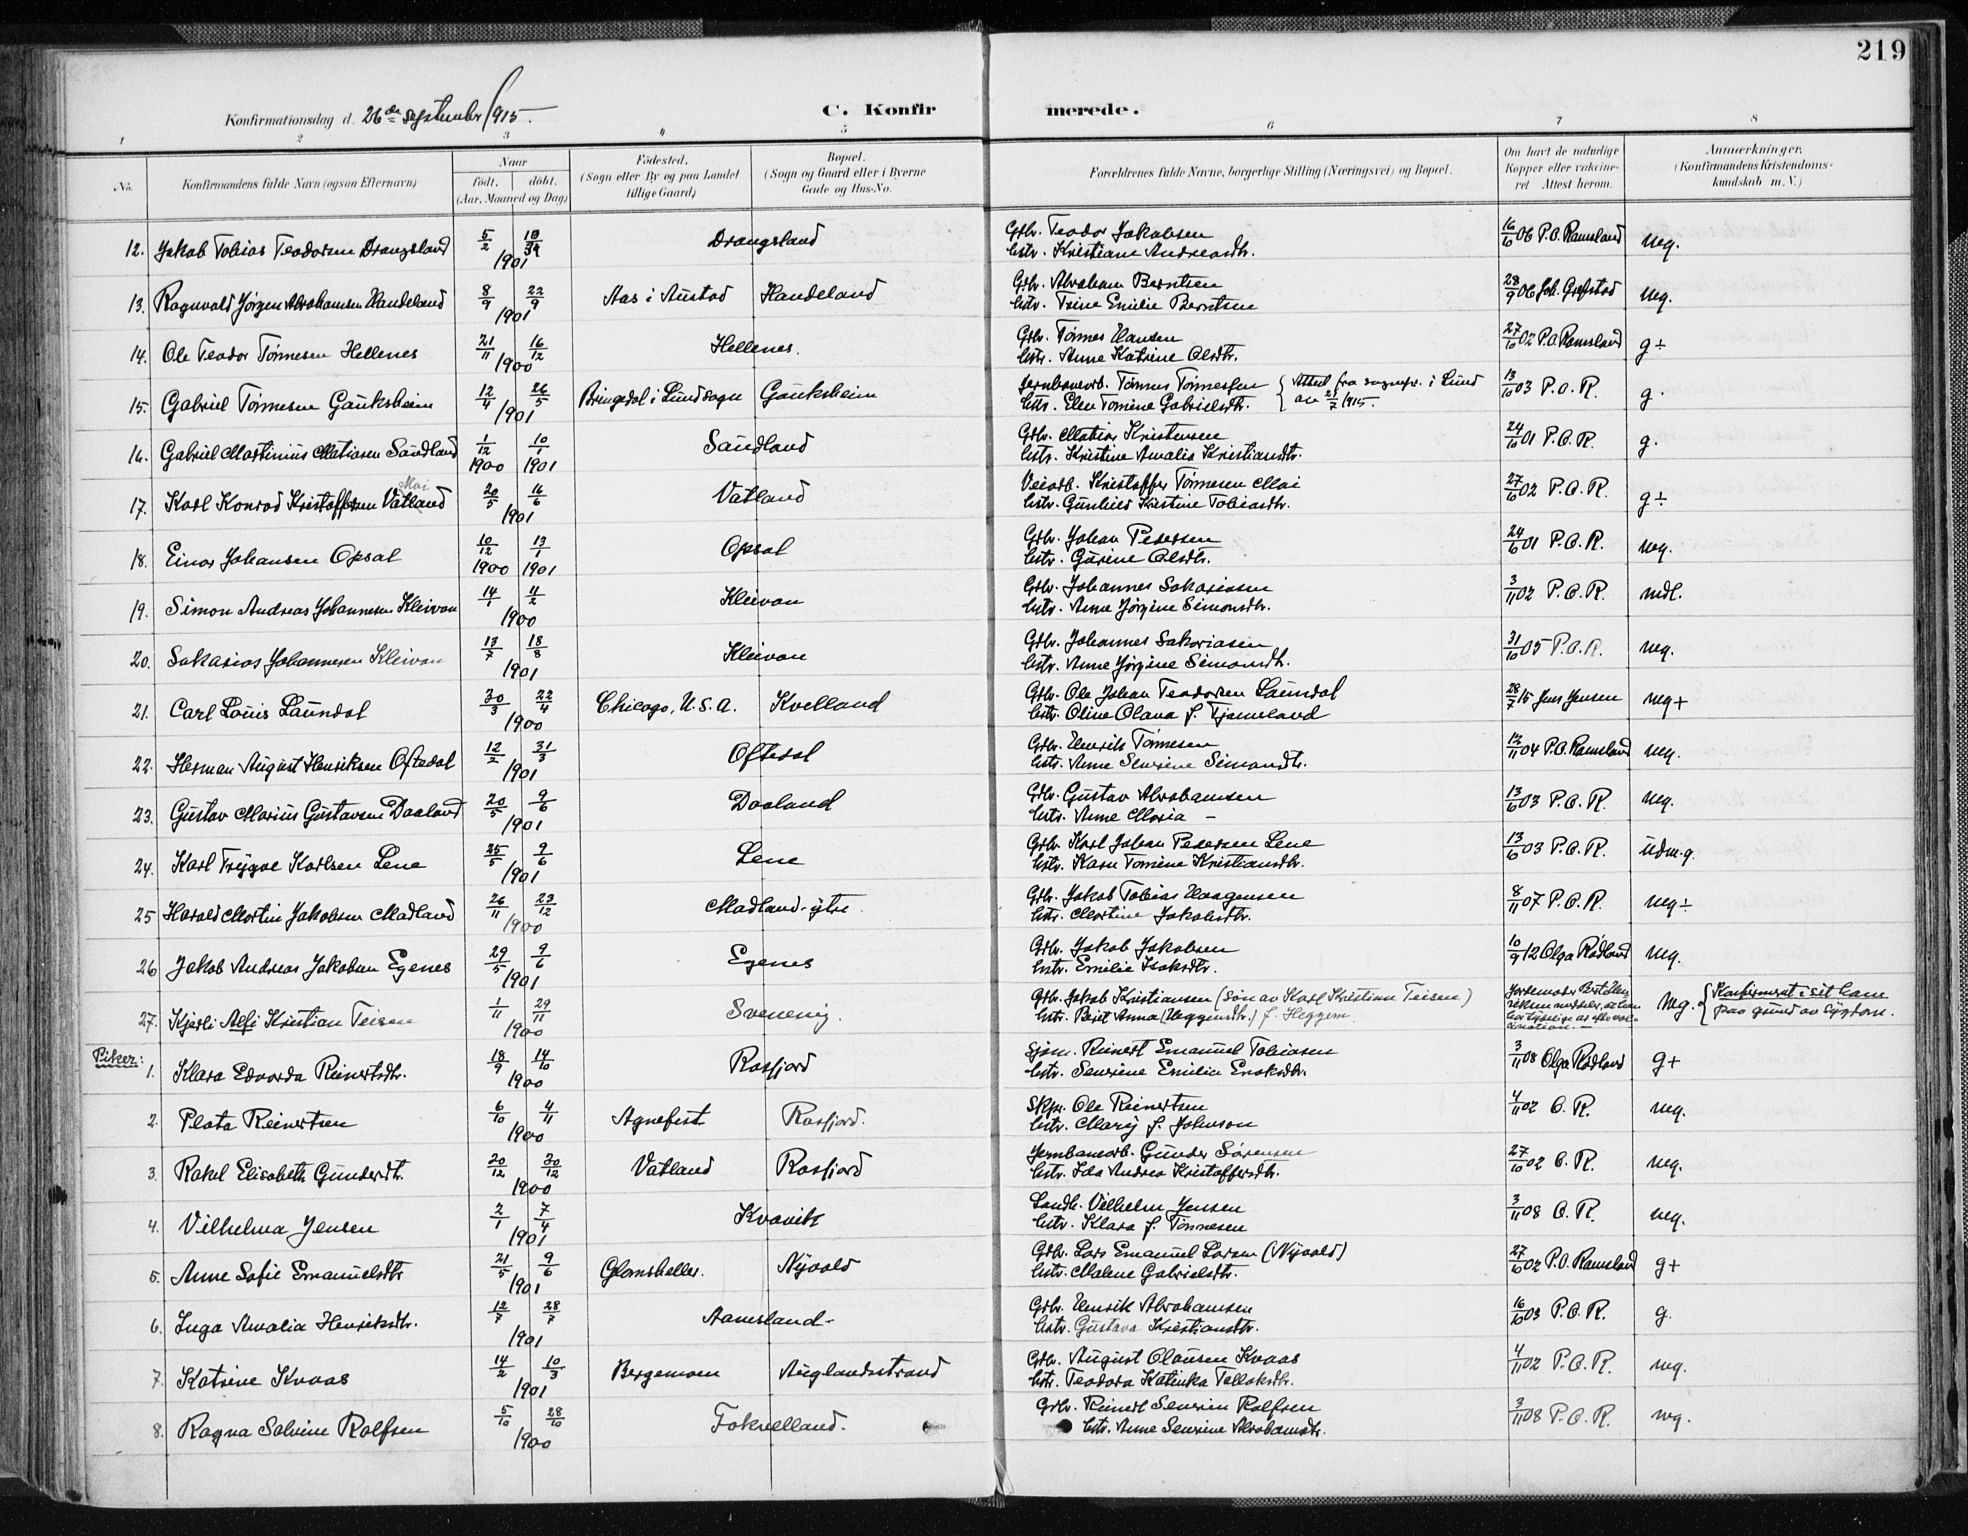 219
Konfirmationsdag d. 26de september 1915.
C. Konfirmerede.
1 2 3 4 5 6 7 8
No. Konfirmandens fulde Navn (ogsaa Efternavn) Naar født. døbt. (Aar, Maaned og Dag) Fødested. (Sogn eller By og paa Landet tillige Gaard) Bopæl. (Sogn og Gaard eller i Byerne Gade og Hus-No. Forældrenes fulde Navne, borgerlige Stilling (Næringsvei) og Bopæl. Om havt de naturlige Kopper eller vakcineret Attest herom. Anmærkninger. (Konfirmandens Kristendomskundskab m. V.)
12. Jakob Tobias Teodorsen Drangsland 5/2 1901 Drangsland Grbr. Teodor Jakobsen Hstr. Kristiane Andreasdtr. 16/10 06 P.O. Ramsland meg.
13. Ragnvald Jørgen Abrahamsen Handeland 8/9 22/9 1901 Aas i Austad Handeland Grbr. Abraham Berntsen Hstr. Trine Emilie Berntsen 28/9 06 Joh. meg.
14. Ole Teodor Tørresen Hellenes 21/11 16/12 1900 Hellenes. Grbr. Tørres Hansen Hstr. Anne Katrine Olsdtr. 27/10 02 P.O. Ramsland g÷
15. Gabriel Tønnesen Gauksheim 12/4 26/5 1901 Bringedal i Lund sogn Gauksheim Jernbanearb. Tønnes Tønnessen Hstr. Elen Tomine Gabrielsdtr. { Attest fra sognepr. i Lund av 21/7 1915. 13/10 03 P.O.R. g.
16. Gabriel Martinius Matiasen Sandland 1/12 1900 10/1 1901 Sandland Grbr. Matias Kristensen Hstr. Kristine Amalia Kristiansdtr. 24/10 01 P.O.R. g.
17. Karl Konrad Kristoffersen Vatland Moi 20/5 16/6 1901 Vatland Veiarb. Kristoffer Tønnesen Moi Hstr. Gunhild Kristine Tobiasdtr. 27/10 02 P.O.R. g÷
18. Einar Johansen Opsal 10/12 1900 13/1 1901 Opsal Grbr. Johan Pedersen Hstr. Gurine Olsdtr. 24/10 01 P.O.R. meg.
19. Simon Andreas Johannesen Kleivan 14/1 11/2 1900 Kleivan Grbr. Johannes Sakariasen Hstr. Anne Jørgine Simonsdtr. 3/11 02 P.O.R. mdl.
20. Sakarias Johannesen Kleivan 13/7 18/8 1901 Kleivan Grbr. Johannes Sakariasen Hstr. Anne Jørgine Simonsdtr. 31/10 05 P.O.R. meg.
21. Carl Louis Laundal 30/3 22/4 1900 Chicago, U.S.A. Kvelland Grbr. Ole Johan Teodorsen Laundal Hstr. Oline Olava f. Tjomsland 28/7 15 Jens Jensen meg+
22. Herman August Henriksen Oftedal 12/2 31/3 1901 Oftedal Grbr. Henrik Tønnesen Hstr. Anne Severine Simonsdtr. 12/11 04 P.O. Ramsland meg.
23. Gustav Marius Gustavsen Daaland 20/5 9/6 1901 Daaland Grbr. Gustav Abrahamsen Hstr. Anne Maria – 13/10 03 P.O.R. meg.
24. Karl Trygve Karlsen Lene 25/5 9/6 1901 Lene Grbr. Karl Johan Pedersen Lene Hstr. Karn Tomine Kristiansdtr. 13/10 03 P.O.R. udm.g.
25 Harald Martin Jakobsen Madland 26/11 23/12 1900 Madland-ytre. Grbr. Jakob Tobias Haagensen Hstr. Martine Jakobsdtr. 8/11 07 P.O.R. meg÷
26 Jakob Andreas Jakobsen Egenes 29/5 9/6 1901 Egenes Grbr. Jakob Jakobsen Hstr. Emilie Isaksdtr. 10/9 12 Olga Rødland meg.
27. Kjerli Alfi Kristian Teisen 1/11 29/11 1900 Svenevig. Grbr. Jakob Kristiansen (søn av Karl Kristian Teisen) Hstr. Beret Anna (Heggemdtr.) f. Heggem Jordemoder meg. { Konfirmeret i sit hjem paa grund av sygdom.
Piker:
1. Klara Edvarda Reinertsdtr. 18/9 14/10 1900 Rosfjord Sjøm. Reinert Emanuel Tobiasen Hstr. Severine Emilie Enoksdtr. 3/11 08 Olga Rødland g+
2. Plata Reinertsen 6/10 4/11 1900 Agnefest Rosfjord. Skpr. Ole Reinertsen Hstr. Mary f. Johnson 4/11 02 O.R. meg.
3. Rakel Elisabeth Gundersdtr. 20/12 30/12 1900 Vatland Rosfjord Jernbanearb. Gunder Sørensen Hstr. Ida Andrea Kristoffersdtr. 27/10 02 O.R. meg.
4. Vilhelma Jensen 2/1 7/4 1901 Kvavik Landh. Vilhelm Jensen Hstr. Klara f. Tønnesen 3/11 08 O.R. meg.
5. Anne Sofie Emanuelsdtr 21/5 9/6 1901 Glomsheller. Nyvold Grbr. Lars Emanuel Larsen (Nyvold) Hstr. Malene Gabrielsdtr. 27/10 02 P.O. Ramsland g+
6. Inga Amalia Henriksdtr. 12/7 28/7 1901 Aamsland- Grbr. Henrik Abrahamsen Hstr. Gustava Kristiansdtr. 16/10 03 P.O.R. g.
7. Katrine Kvaas 14/2 10/3 1901 Bergemoen Auglandsstrand Grbr. August Olausen Kvaas Hstr. Teodora Katinka Tollaksdtr. 4/11 02 P.O.R. meg.
8. Ragna Salvine Rolfsen 5/10 28/10 1900 Fokselland. Grbr. Reinert Severin Rolfsen Hstr. Anne Severine Abrahamsdtr. 3/11 08 P.O.R. meg.